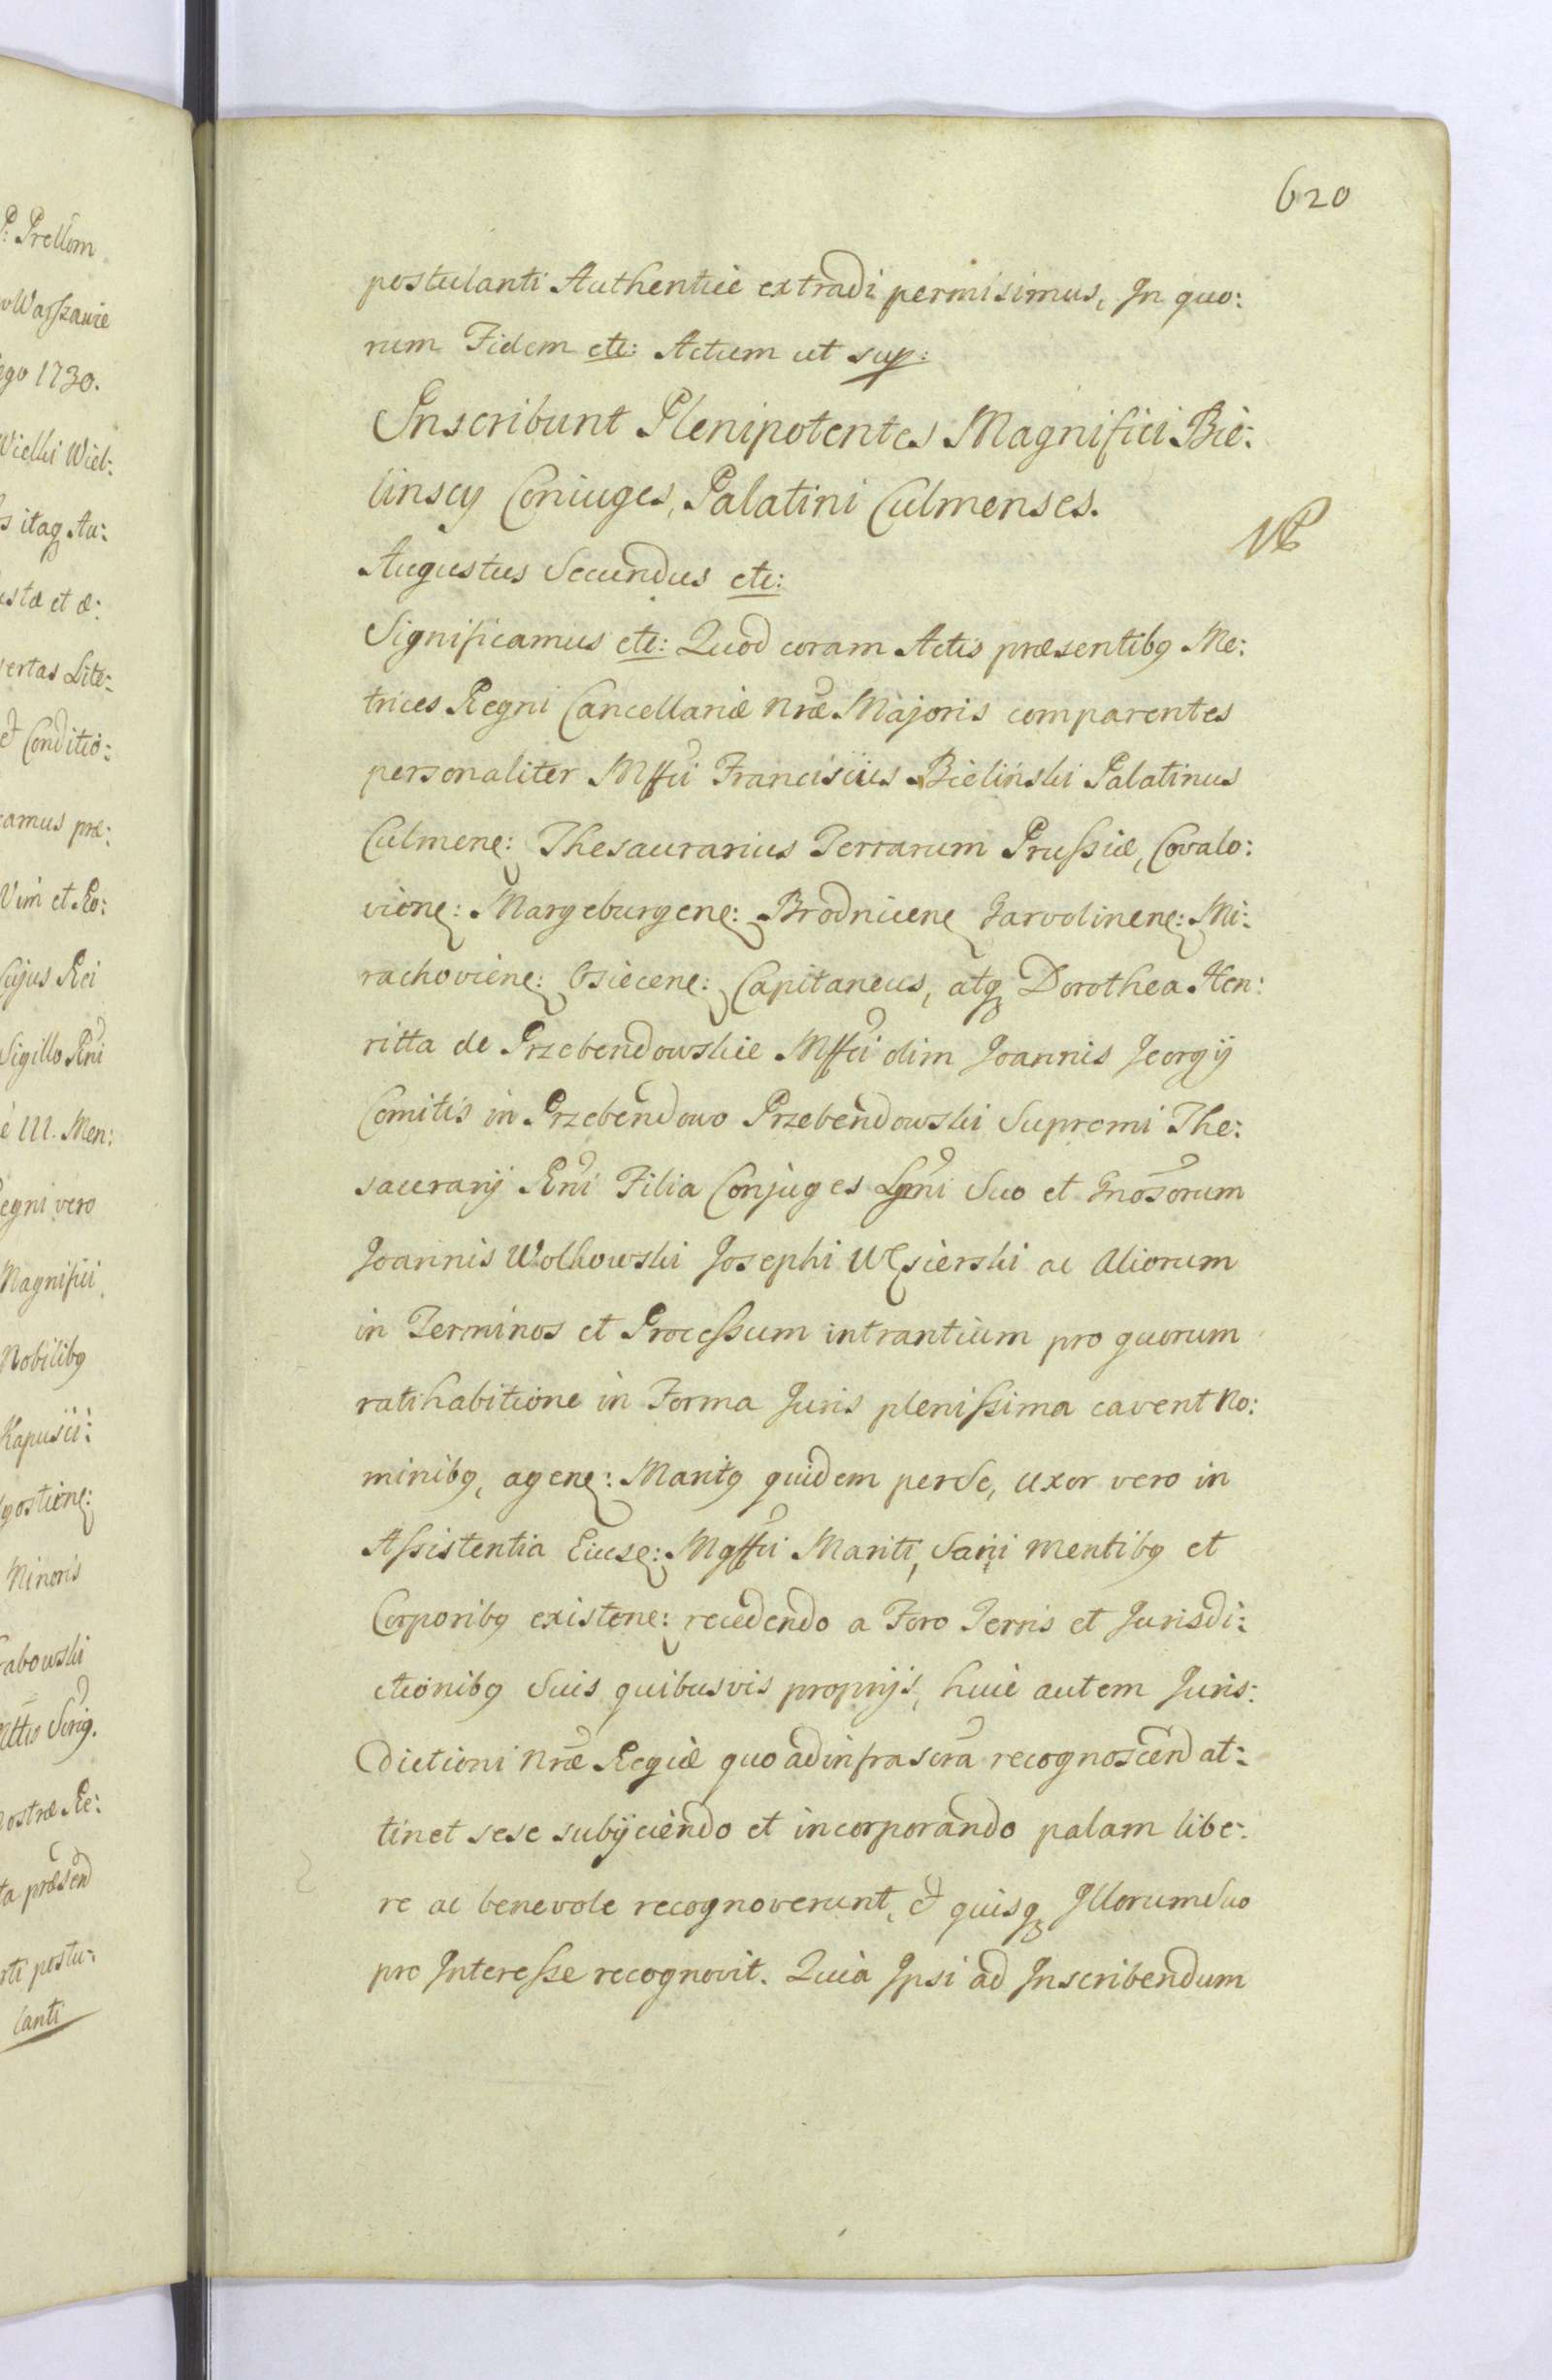 620
postulanti Authentice extradi permisimus, In quo:
rum Fidem etc: Actum ut sup:
Inscribunt Plenipotentes Magnifici Bie:
linscy Coniuges, Palatini Culmenses.
Augustus Secundus etc:
Significamus etc: Quod coram Actis præsentibq Me:
trices Regni Cancellariæ nræ Majoris comparentes
personaliter Mffci Franciscus Bielinski Palatinus
Culmenę: Thesaurarius Terrarum Prussiæ, Covalo:
vienę: Margeburgenę: Brodnicenę Garvolinenę: Mi:
rachovienę: Osiecenę: Capitaneus, atq Dorothea Hen:
ritta de Przebendowskie Mffci olim Joannis Georgij
Comitis in Przebendowo Przebendowski Supremi The:
saurarij Rni Filia Conjuges Lgmi Suo et Gnosorum
Joannis Wolkowski Josephi Węsierski ac Aliorum
in Terminos et Processum intrantium pro quorum
ratihabitione in Forma Juris plenissima cavent No:
minibq, agenę: Maritq quidem per Se, uxor vero in
Assistentia Eiusę: Mgffci Mariti, Sani mentibq et
Corporibq existenę: recedendo a Foro Terris et Jurisdi:
ctionibq Suis quibusvis proprijs, huic autem Juris:
Dictioni nræ Regiæ quo ad infrascra recognoscend at:
tinet sese subijciendo et incorporando palam libe:
re ac benevole recognoverunt, et quisq Illorum Suo
pro Interesse recognovit. Quia Ipsi ad Inscribendum
P: Prellom
Warszawie
ego 1730.
Wielki Wiel:
itaq Au:
et æ:
certas Lite:
et Conditio:
camus præ:
Vim et Ro:
Cujus Rei
Sigillo Rni
III. Men:
Regni vero
Magnifici
Nobilibq
Kapusci:
Minoris
Nostræ Re:
præsend
postu:
lanti